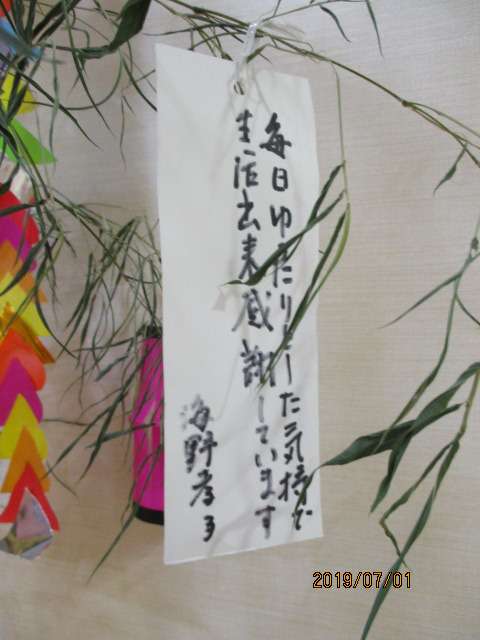 毎日ゆったりとした気持で
生活出来感謝しています
海野孝子
2019/07/01